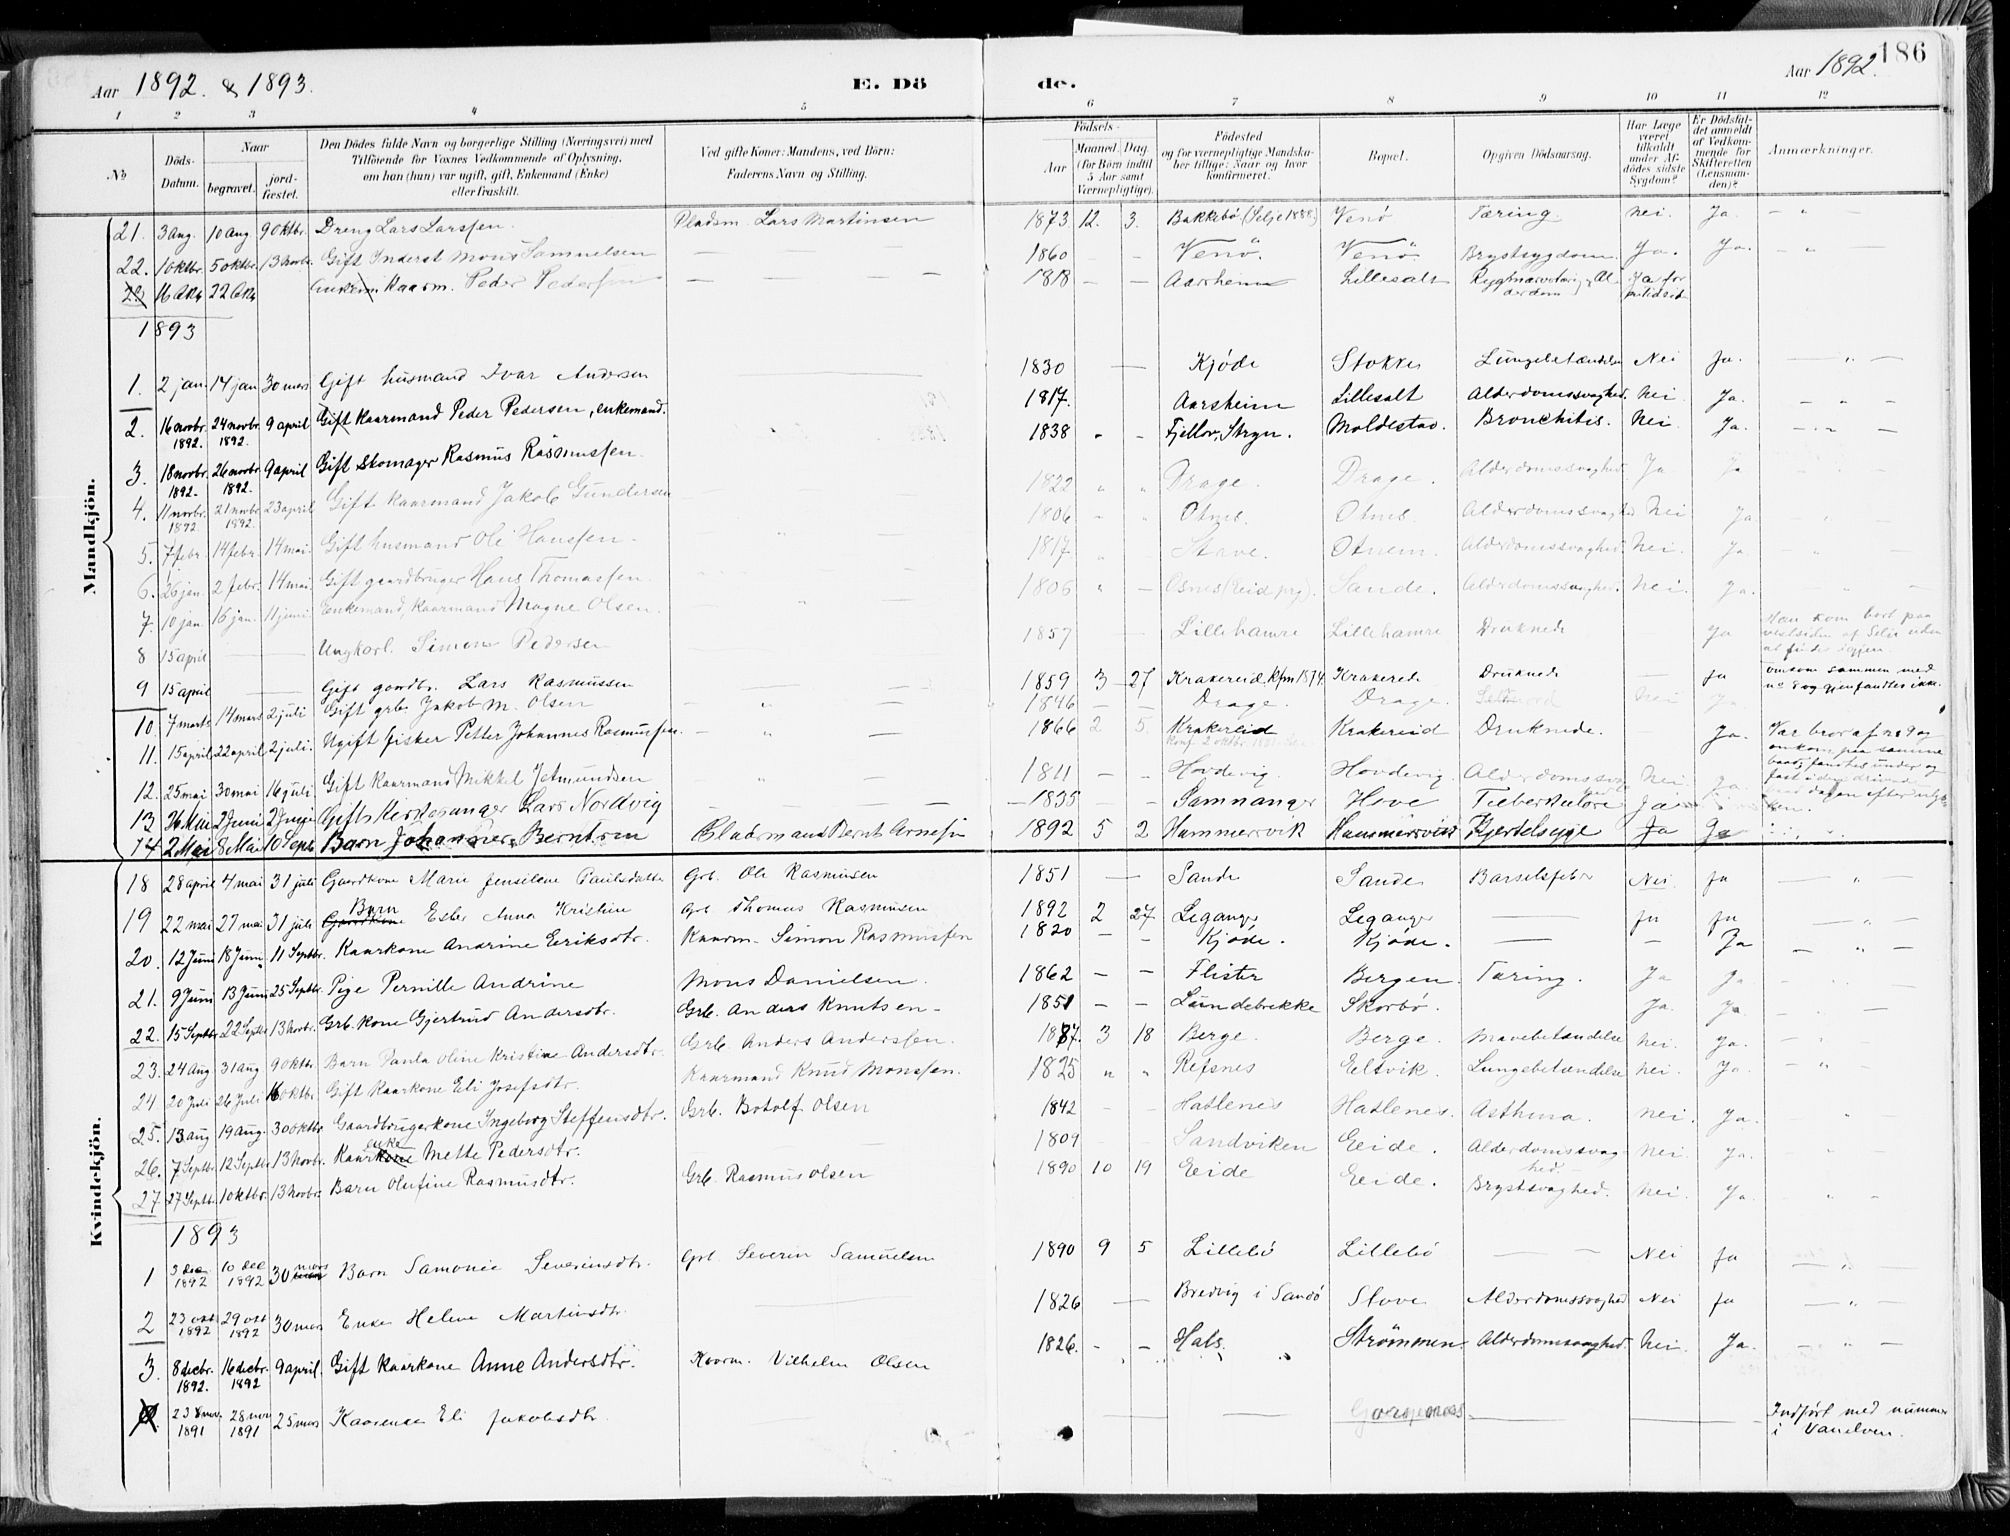 186
Aar 1892 & 1893.
E. Dö de.
Aar 1892.
1 2 3 4 5 6 7 8 9 10 11 12
No
Döds-Datum.
Naar
begravet.
jord-fæstet.
Den Dödes fulde Navn og borgerlige Stilling (Næringsvei) med
Tilföiende for Voxnes Vedkommende af Oplysning,
om han (hun) var ugift, gift, Enkemand (Enke)
eller fraskilt.
Ved gifte Koner: Mandens, ved Börn:
Faderens Navn og Stilling.
Födsels-
Aar
Maaned. Dag.
(for Börn indtil
5 Aar samt
Værnepligtige).
Födested
og for værnepligtige Mandska-
ber tillige: Naar og hvor
konfirmeret.
Bopæl.
Opgiven Dödsaarsag.
Har Læge
været
tilkaldt
under Af-
dödes sidste
Sygdom?
Er Dödsfal-
det anmeldt
af Vedkom-
mende for
Skifteretten
(Lensman-
den)?
Anmærkninger.
Mandkjön.
21. 3 Aug. 10 Aug. 9 Oktbr. Dreng Lars Larssen. Pladsm. Lars Martinsen 1873 12. 3. Bakkebö (Selje 1888) Venö Tæring. Nei. Ja. — " —
22. 10 Oktbr. 5 Oktbr. 13 Novbr. Gift Inderst Mons Samuelsen — — 1860 - - Venö. Venö. Brystsygdom. Ja. Ja. — " —
23 16 22 Kaarm. Peder Pedersen — — 1818 — — Aarsheim Lillesalt Rygmarvstæring, Alderdom Ja for
1893
1. 2 jan. 14 jan 30 mars Gift husmand Ivar Andersen 1830 — Kjöde Stokke Lungebetændelse Nei Ja. — " —
2. 16 novbr. 1892. 24 novbr. 1892. 9 april Gift Kaarmand Peder Pedersen, enkemand. 1817. Aarsheim Lillesalt Alderdomssvaghed. Nei. Ja. - " -
3. 18 novbr. 1892. 26 novbr. 1892. 9 april Gift Skomager Rasmus Rasmussen. 1838 - - Fjellov. Stryn. Moldestav. Bronchitis. Nei. Ja. - " -
4. 11 novbr. 1892 21 novbr. 1892. 23 april Gift Kaarmand Jakob Gundersen 1822 " " Drage. Drage. Alderdomssvaghed. Ja Ja
5. 7 febr. 14 febr. 14 mai. Gift husmand Ole Hanssen. 1806 - " Otneb. Otneb. Alderdomssvaghed Nei Ja
6. 26 jan. 2 febr. 14 mai. Gift gaardbruger Hans Thomassen. 1817 " Stave. Otnem. Alderdomssvaghed. Nei. Ja
7. 10 jan. 16 jan. 11 juni Enkemand, Kaarmand Magne Olsen. 1806 " — Osnes (Eid prg). Sande. Alderdomssvaghed. Nei. Ja.
8 15 april — — Ungkarl. Simon Pedersen 1857 - Lillehamre Lillehamre Druknede — Ja Han kom bort paa
vestsiden af Selje uden
at findes igjen.
9 15 april — Gift gardbr. Lars Rasmussen 1859 3 27 Krakereid. Kfm 1874. Krakereid Druknede Ja omkom sammen med
no 8 og gjenfandtes ikke.
10. 7 marts 14 mars 2 juli Gift grb. Jakob M. Olsen 1846 — - Drage. Drage. Nei Ja
11. 15 april 22 april 2 juli. Ugift fisker Petter Johannes Rasmussen. 1866 2 5. Krakereid Krakereid Druknede. Ja. Var bror af no 9 og
omkom paa samme
baad,
12. 25 mai 30 mai 16 juli Gift Kaarmand Mikkel Jetmundsen 1811 - - Hovdevig. Hovdevig. Nei Ja
13 26 Mai 2 Juni 2 Gift Kirkesanger Lars Nordvig 1835 - - Samnanger Hove Tuberkulose Ja
14 2 Mai 8 Mai 10 Septb Barn Johannes Berntsen Pladsmand Bernt Arnesen 1892 5 2 Hammersvik Hammersvik Kjertelsyge Ja Ja
Kvindekjön.
18 28 april 4 mai 31 juli Gaardkone Marie Jensline Paulsdatter Grb. Ole Rasmusen 1851 — Sande Sande Barselsfeber Nei. Ja — " —
19 22 mai 27 mai 31 juli Barn Gaardkone Ester Anna Kristine Grb Thomas Rasmusen 1892 2 27 Leganger Leganger — Ja Ja - " -
20. 12 Juni 18 Juni 11 Septbr. Kaarkone Andrine Eriksdtr. Kaarm. Simon Rasmussen 1820 - - Kjøde. Kjøde. — - Ja - " -
21. 9 Juni 13 Juni 25 Septbr. Pige Pernille Andrine Mons Danielsen. 1862 - - Flister Bergen. Tæring. Ja Ja
22. 15 Septbr 22 Septbr 13 Novbr. Grb. Kone Gjertrud Andersdtr. Grb. Anders Knutsen - 1851 - - Lundebrekke Skorbö. Ja. Ja
23. 24 Aug 31 Aug 9 Oktbr Barn Paula Oline Kristine Andersdtr. Grb. Anders Anderssen. 1887. 3 18 Berge. Berge. Mavebetændelse Nei. Ja.
24 20 Juli 26 Juli 16 Oktbr. Gift Kaarkone Eli Josefsdtr. Kaarmand Knud Monssen. 1825 " " Refsnes Eltvik. Lungebetændelse Nei. Ja. - " -
25. 13 aug 19 aug. 30 oktbr Gaardbrugerkone Ingeborg Steffensdtr. Grb. Botolf Olsen 1842 - - Hatlenes Hatlenes. Asthma. Nei. Ja.
26. 7 Septbr 12 Septbr 13 Novbr. Kaarkone enke Mette Pedersdtr. 1809 - - Sandviken Eide. Alderdomssvaghed Nei. Ja.
27. 27 Septbr. 1 Oktbr. 13 Novbr. Barn Olufine Rasmusdtr. Grb. Rasmus Olsen 1890 10 19 Eide Eide. Brystsvaghed. Nei. Ja.
1893
1 3 dec 1892 10 dec 1892 30 mars Barn Samonie Severinsdtr. Grb. Severin Samuelsen 1890 9 5 Lillebö Lillebö — — Nei Ja — " —
2 23 okt 1892 29 okt 1892 30 mars Enke Helene Martinsdtr. 1826 — Bredvig i Sandö Stove Alderdomssvaghed Nei Ja — " —
3. 8 decbr. 1892. 16 decbr. 1892 9 april. Gift Kaarkone Anne Andersdtr. Kaarm. Vilhelm Olsen 1826. - - Hals. Strömmen Alderdomssvaghed. Nei. Ja. — " —
23 nov. 1891 28 nov 1891 25 mars Kaarenke Eli Jakobsdtr. — — — — — Indført med nummer
i Vanelven.